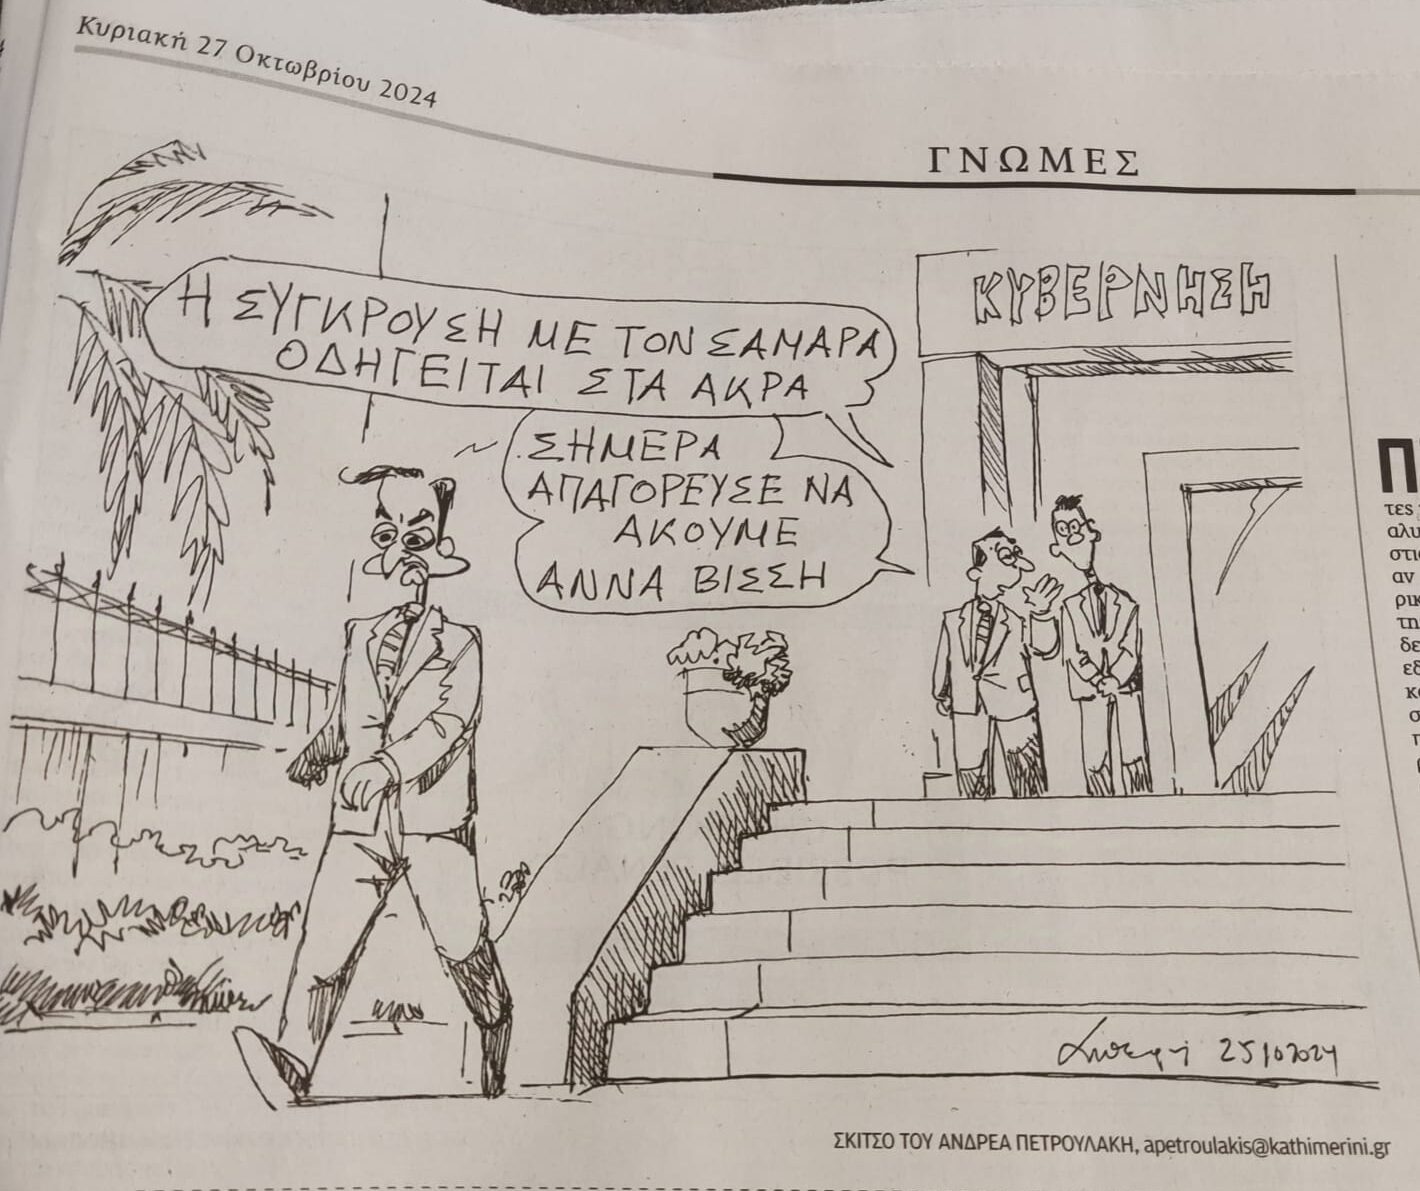 Κυριακή 27 Οκτωβρίου 2024
ΓΝΩΜΕΣ
ΚΥΒΕΡΝΗΣΗ
Η ΣΥΓΚΡΟΥΣΗ ΜΕ ΤΟΝ ΣΑΜΑΡΑ
ΟΔΗΓΕΙΤΑΙ ΣΤΑ ΑΚΡΑ
ΣΗΜΕΡΑ
ΑΠΑΓΟΡΕΥΣΕ ΝΑ
ΑΚΟΥΜΕ
ΑΝΝΑ ΒΙΣΣΗ
25/10/2024
ΣΚΙΤΣΟ ΤΟΥ ΑΝΔΡΕΑ ΠΕΤΡΟΥΛΑΚΗ, apetroulakis@kathimerini.gr
Π
τες
αλυ
στι
αν
ρικ
τη
δε
εδ
κ
σ